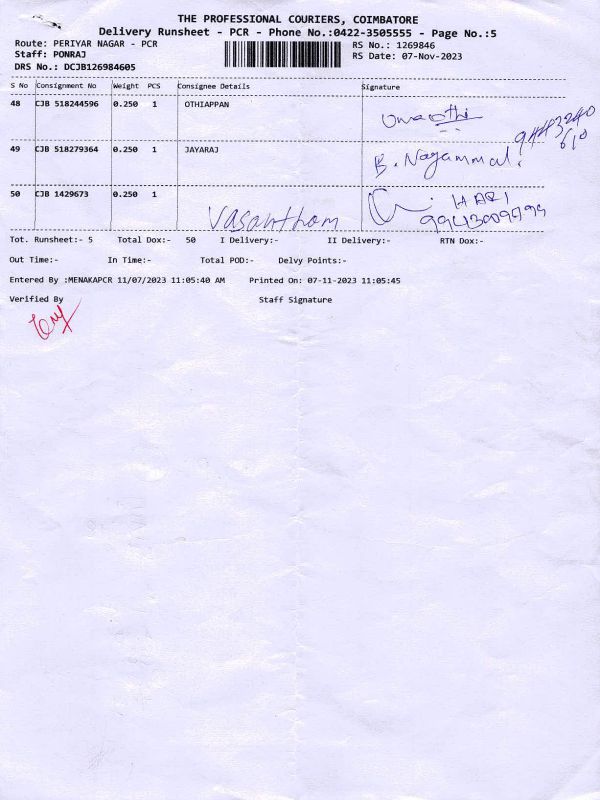 THE PROFESSIONAL COURIERS, COIMBATORE
Delivery Runsheet - PCR - Phone No.:0422-3505555 - Page No.:5
Route: PERIYAR NAGAR - PCR
RS No.: 1269846
Staff: PONRAJ
RS Date: 07-Nov-2023
DRS No.: DCJB126984605
S No Consignment No Weight PCS Consignee Details Signature
48 CJB 518244596 0.250 1 OTHIAPPAN
49 CJB 518279364 0.250 1 JAYARAJ B. Nagammal.
50 CJB 1429673 0.250 1 Vasantham HARI
Tot. Runsheet:- 5 Total Dox:- 50 I Delivery:- II Delivery:- RTN Dox:-
Out Time:- In Time:- Total POD:- Delvy Points:-
Entered By :MENAKAPCR 11/07/2023 11:05:40 AM Printed On: 07-11-2023 11:05:45
Verified By Staff Signature